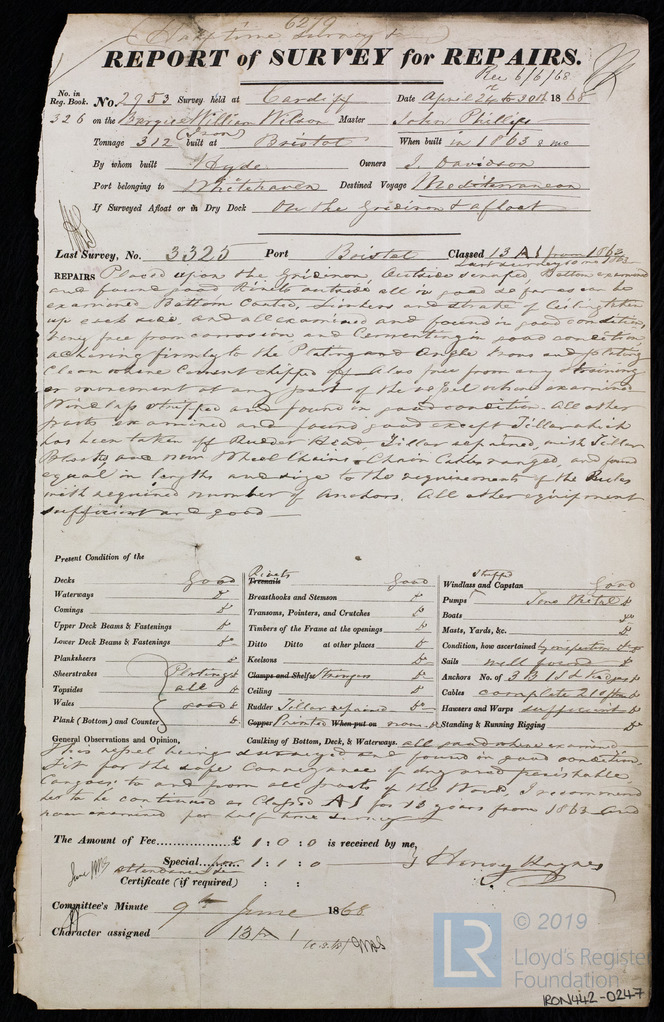 62/9
Half time Survey
REPORT of SURVEY for REPAIRS.
Rec 6/6/68
No. in Reg. Book. No. 2953 Survey held at Cardiff Date April 24 to 30th 1868
326 on the Barque William Wilson Master John Phillips
(Iron)
Tonnage 312 built at Bristol When built in 1863 8 mo
By whom built Hyde Owners J Davidson
Port belonging to Whitehaven Destined Voyage Mediterranean
If Surveyed Afloat or in Dry Dock On the Gridiron & afloat
Last Survey, No. 3325 Port Bristol Classed 13 A1 from 1863
REPAIRS Placed upon the Gridiron Outside Bottom examined
and found good Rivets outside all in good so far as can be
examined Bottom Coated, Limbers and strake of Ceiling taken
up each side and all examined and found in good condition,
being free from corrosion and Cementing in good condition,
adhering firmly to the Plating and Angle Irons and plating
clean where Cement chipped off Also free from any straining
or movement at any part of the vessel where examined
Windlass stripped and found in good condition. All other
parts examined and found good except Tiller which
has been taken off Rudder Head, Tiller repaired, with Tiller
Blocks and new Wheel Chains. Chain Cables ranged, and found
equal in lengths and size to the requirements of the Rules
with required number of Anchors. All other equipment
sufficient and good
Present Condition of the
Decks good
Waterways Do
Comings Do
Upper Deck Beams & Fastenings Do
Lower Deck Beams & Fastenings Do
Planksheers
Sheerstrakes Plating
Topsides all
Wales good
Plank (Bottom) and Counter
Rivets
Treenails good
Breasthooks and Stemson Do
Transoms, Pointers, and Crutches Do
Timbers of the Frame at the openings Do
Ditto Ditto at other places Do
Keelsons Do
Clamps and Shelfs Stringers Do
Ceiling Do
Rudder Tiller repaired Do
Copper Painted When put on now Do
Caulking of Bottom, Deck, & Waterways. all good where examined
stripped
Windlass and Capstan good
Pumps Do
Boats Do
Masts, Yards, &c. Do
Condition, how ascertained by inspection
Sails well found
Anchors No. of 3 B 1 S &
Cables complete
Hawsers and Warps sufficient Do
Standing & Running Rigging Do
General Observations and Opinion,
This vessel being surveyed and found in good condition
fit for the safe conveyance of dry and perishable
Cargoes to and from all parts of the World, I recommend
her to be continued as Classed A1 for 13 years from 1863 and
now examined for half time survey
The Amount of Fee...............£ 1 : 0 : 0 is received by me,
Special 1 : 1 : 0 J Henry Haynes
attendance
Certificate (if required) : :
Committee's Minute 9th June 1868
Character assigned 13 A 1
© 2019
LR
Lloyd's Register
Foundation
IRON442-0247